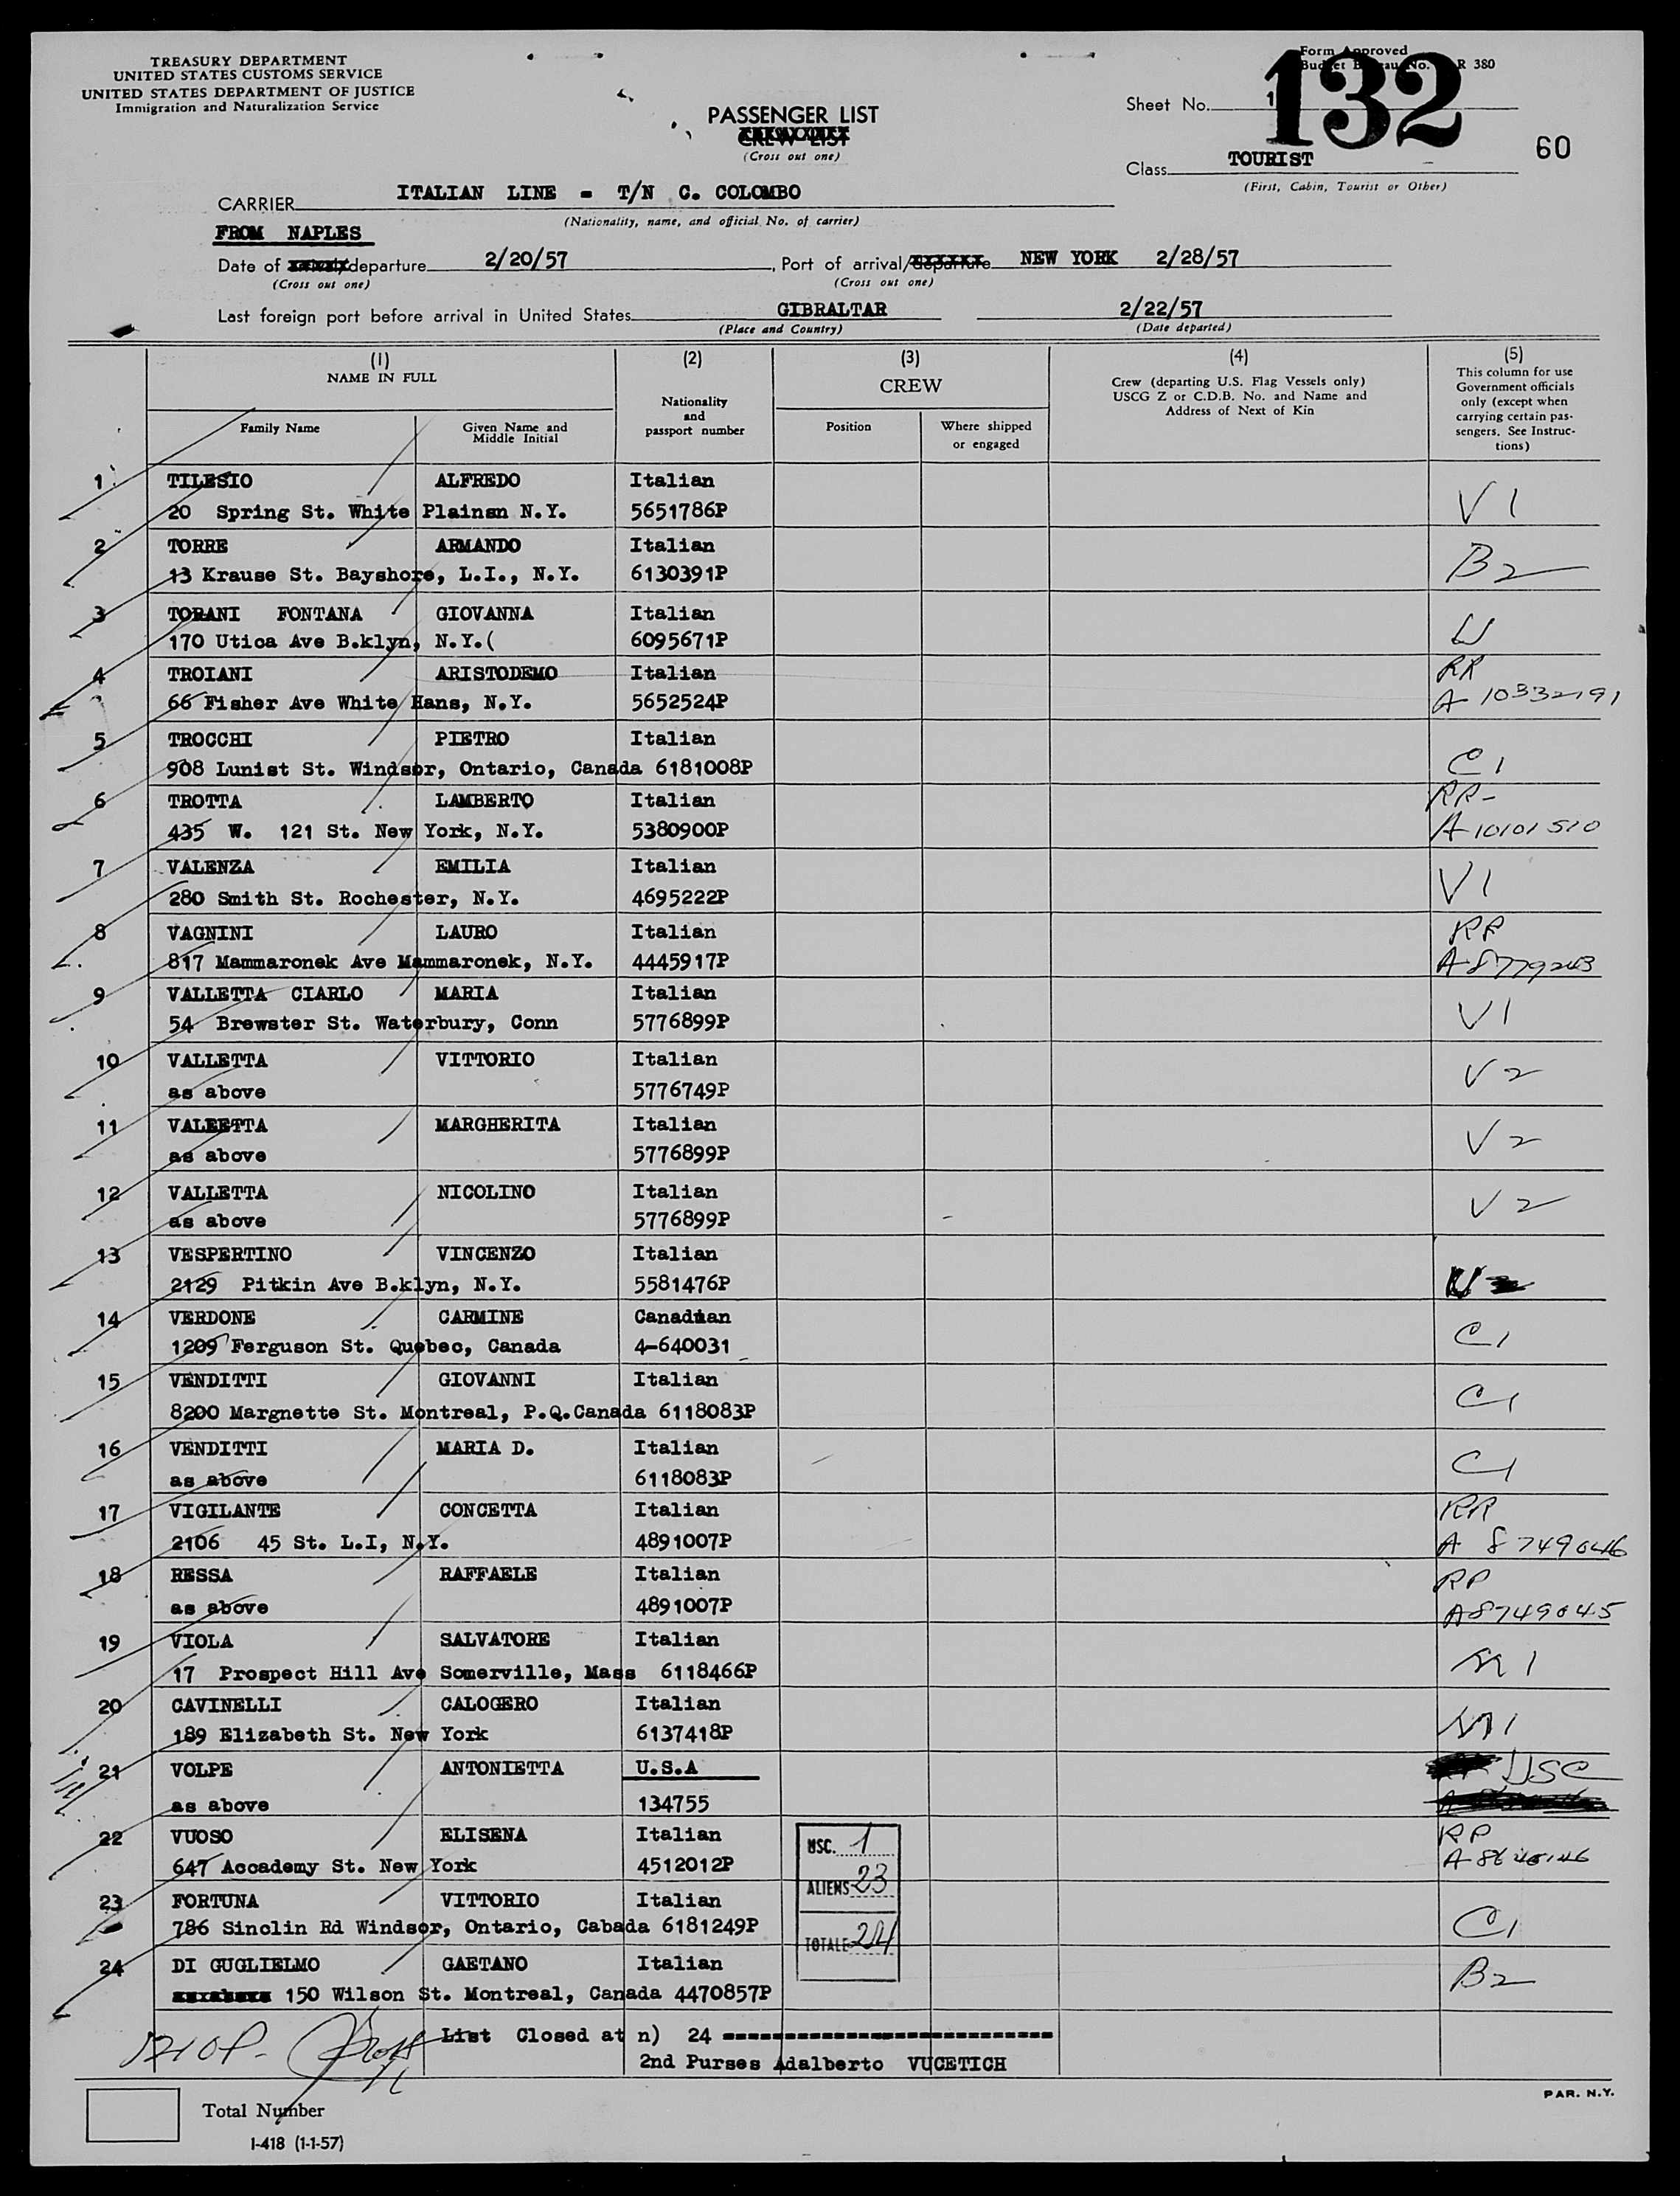 TREASURY DEPARTMENT
UNITED STATES CUSTOMS SERVICE
UNITED STATES DEPARTMENT OF JUSTICE
Immigration and Naturalization Service
PASSENGER LIST
CREW LIST
(Cross out one)
Form Approved
Budget Bureau No. R 380
Sheet No. 1
132
60
Class TOURIST
(First, Cabin, Tourist or Other)
CARRIER ITALIAN LINE - T/N C. COLOMBO
(Nationality, name, and official No. of carrier)
FROM NAPLES
Date of departure 2/20/57, Port of arrival/departure NEW YORK 2/28/57
(Cross out one) (Cross out one)
Last foreign port before arrival in United States GIBRALTAR 2/22/57
(Place and Country) (Date departed)
(1) NAME IN FULL
Family Name
Given Name and Middle Initial
(2)
Nationality and passport number
(3)
CREW
Position
Where shipped or engaged
(4)
Crew (departing U.S. Flag Vessels only)
USCG Z or C.D.B. No. and Name and
Address of Next of Kin
(5)
This column for use
Government officials
only (except when
carrying certain pas-
sengers. See Instruc-
tions)
1 TILESIO ALFREDO Italian
20 Spring St. White Plainsn N.Y. 5651786P V1
2 TORRE ARMANDO Italian
13 Krause St. Bayshore, L.I., N.Y. 6130391P B2
3 TORANI FONTANA GIOVANNA Italian
170 Utica Ave B.klyn, N.Y.( 6095671P
4 TROIANI ARISTODEMO Italian RR
66 Fisher Ave White Hans, N.Y. 5652524P A-10332191
5 TROCCHI PIETRO Italian
908 Lunist St. Windsor, Ontario, Canada 6181008P C1
6 TROTTA LAMBERTO Italian RR-
435 W. 121 St. New York, N.Y. 5380900P A-10101510
7 VALENZA EMILIA Italian
280 Smith St. Rochester, N.Y. 4695222P V1
8 VAGNINI LAURO Italian RR
817 Mammaronek Ave Mammaronek, N.Y. 4445917P A-8779243
9 VALLETTA CIARLO MARIA Italian
54 Brewster St. Waterbury, Conn 5776899P V1
10 VALLETTA VITTORIO Italian
as above 5776749P V2
11 VALEETTA MARGHERITA Italian
as above 5776899P V2
12 VALLETTA NICOLINO Italian
as above 5776899P V2
13 VESPERTINO VINCENZO Italian
2129 Pitkin Ave B.klyn, N.Y. 5581476P
14 VERDONE CARMINE Canadian
1209 Ferguson St. Quebec, Canada 4-640031 C1
15 VENDITTI GIOVANNI Italian
8200 Margnette St. Montreal, P.Q.Canada 6118083P C1
16 VENDITTI MARIA D. Italian
as above 6118083P C1
17 VIGILANTE CONCETTA Italian RR
2106 45 St. L.I, N.Y. 4891007P A 8749046
18 RESSA RAFFAELE Italian RR
as above 4891007P A8749045
19 VIOLA SALVATORE Italian
17 Prospect Hill Ave Somerville, Mass 6118466P M1
20 CAVINELLI CALOGERO Italian
189 Elizabeth St. New York 6137418P M1
21 VOLPE ANTONIETTA U.S.A USC
as above 134755
22 VUOSO ELISENA Italian RR
647 Accademy St. New York 4512012P
23 FORTUNA VITTORIO Italian
786 Sinclin Rd Windsor, Ontario, Cabada 6181249P C1
24 DI GUGLIELMO GAETANO Italian
150 Wilson St. Montreal, Canada 4470857P B2
USC. 1
ALIENS 23
TOTALE 24
1210P.
List Closed at n) 24
2nd Purses Adalberto VUCETICH
Total Number
I-418 (1-1-57)
PAR. N.Y.